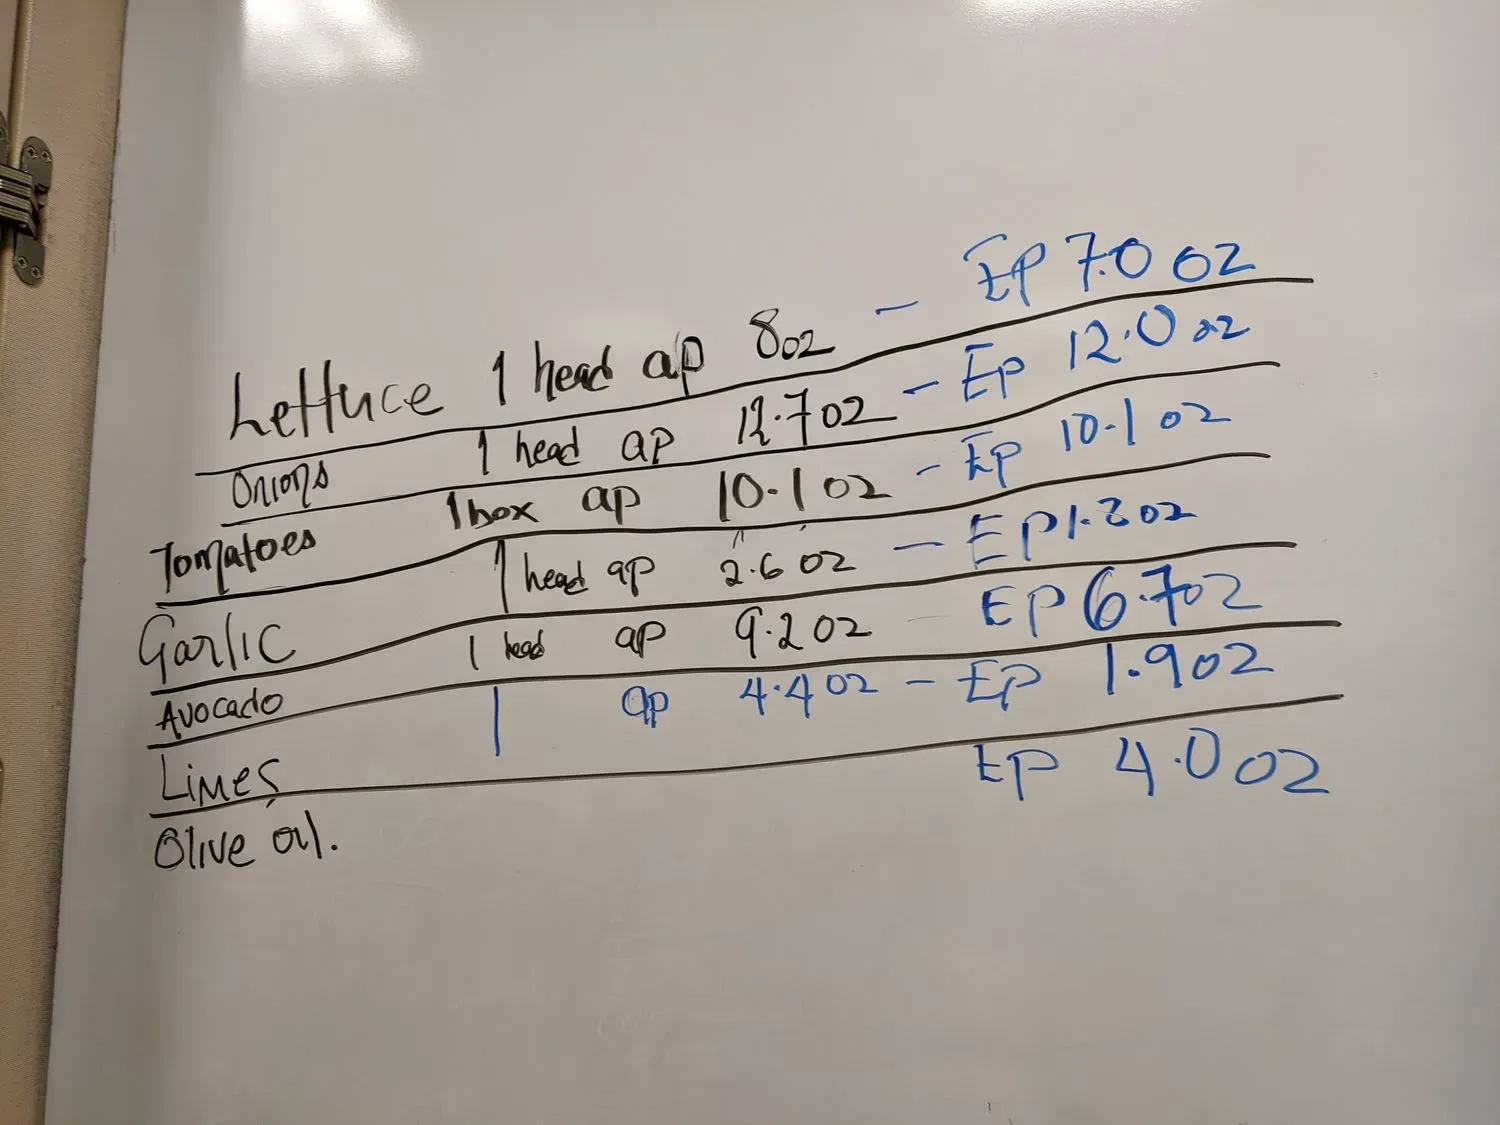 Lettuce 1 head ap 8oz - EP 7.0 oz
Onions 1 head ap 12.7 oz - EP 12.0 oz
Tomatoes 1 box ap 10.1 oz - EP 10.1 oz
Garlic 1 head ap 2.6 oz - EP 1.8 oz
Avocado 1 head ap 9.2 oz EP 6.7 oz
Limes 1 ap 4.4 oz - EP 1.9 oz
Olive oil. EP 4.0 oz